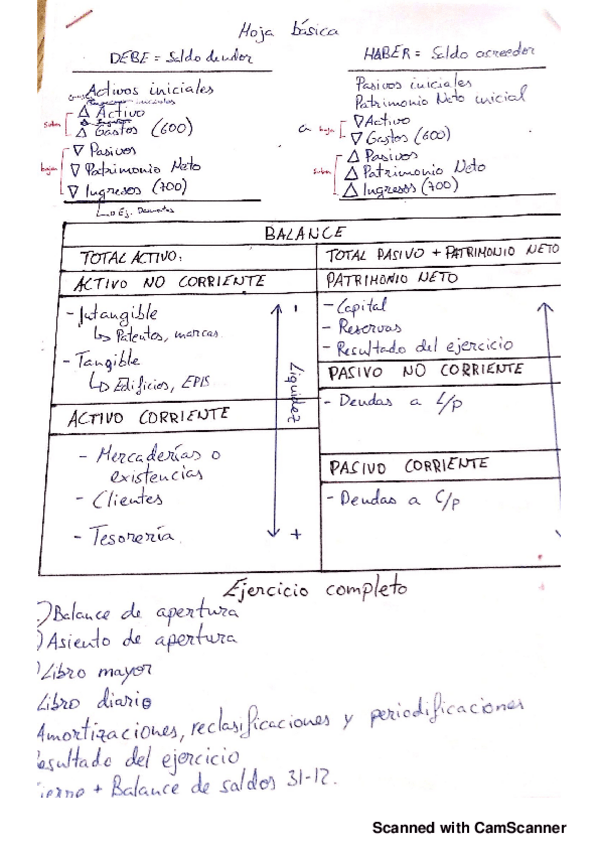 Hoja básica
DEBE = Saldo deudor
HABER = Saldo acreedor
Activos iniciales
△ Activo
△ Gastos (600)
▽ Pasivos
▽ Patrimonio Neto
▽ Ingresos (700)
Sube
baja
Pasivos iniciales
Patrimonio Neto inicial
▽ Activo
▽ Gastos (600)
△ Pasivos
△ Patrimonio Neto
△ Ingresos (700)
baja
Sube
BALANCE
TOTAL ACTIVO:
ACTIVO NO CORRIENTE
- Intangible
↳ Patentes, marcas
- Tangible
↳ Edificios, EPIS
ACTIVO CORRIENTE
- Mercaderías o
existencias
- Clientes
- Tesorería
-
Liquidez
+
TOTAL PASIVO + PATRIMONIO NETO
PATRIMONIO NETO
- Capital
- Reservas
- Resultado del ejercicio
PASIVO NO CORRIENTE
- Deudas a L/p
PASIVO CORRIENTE
- Deudas a C/p
Ejercicio completo
.) Balance de apertura
) Asiento de apertura
) Libro mayor
Libro diario
Amortizaciones, reclasificaciones y periodificaciones
esultado del ejercicio
ierre + Balance de saldos 31-12.
Scanned with CamScanner